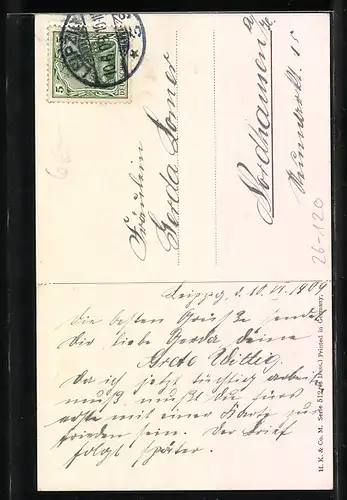 5
LEIPZIG
10.6.09
Fräulein
Gerda Domer
Nordhausen a/H.
15
26-120
Leipzig, d. 10. VI. 1909
Die besten Grüße sendet
Dir liebe Gerda deine
Grete Wittig.
Da ich jetzt tüchtig arbeiten
muß mußt du fürs
erste mit einer Karte zu-
frieden sein. Der Brief
folgt später.
H. K. & Co. M. Serie 512 (6 Dess.) Printed in Germany.